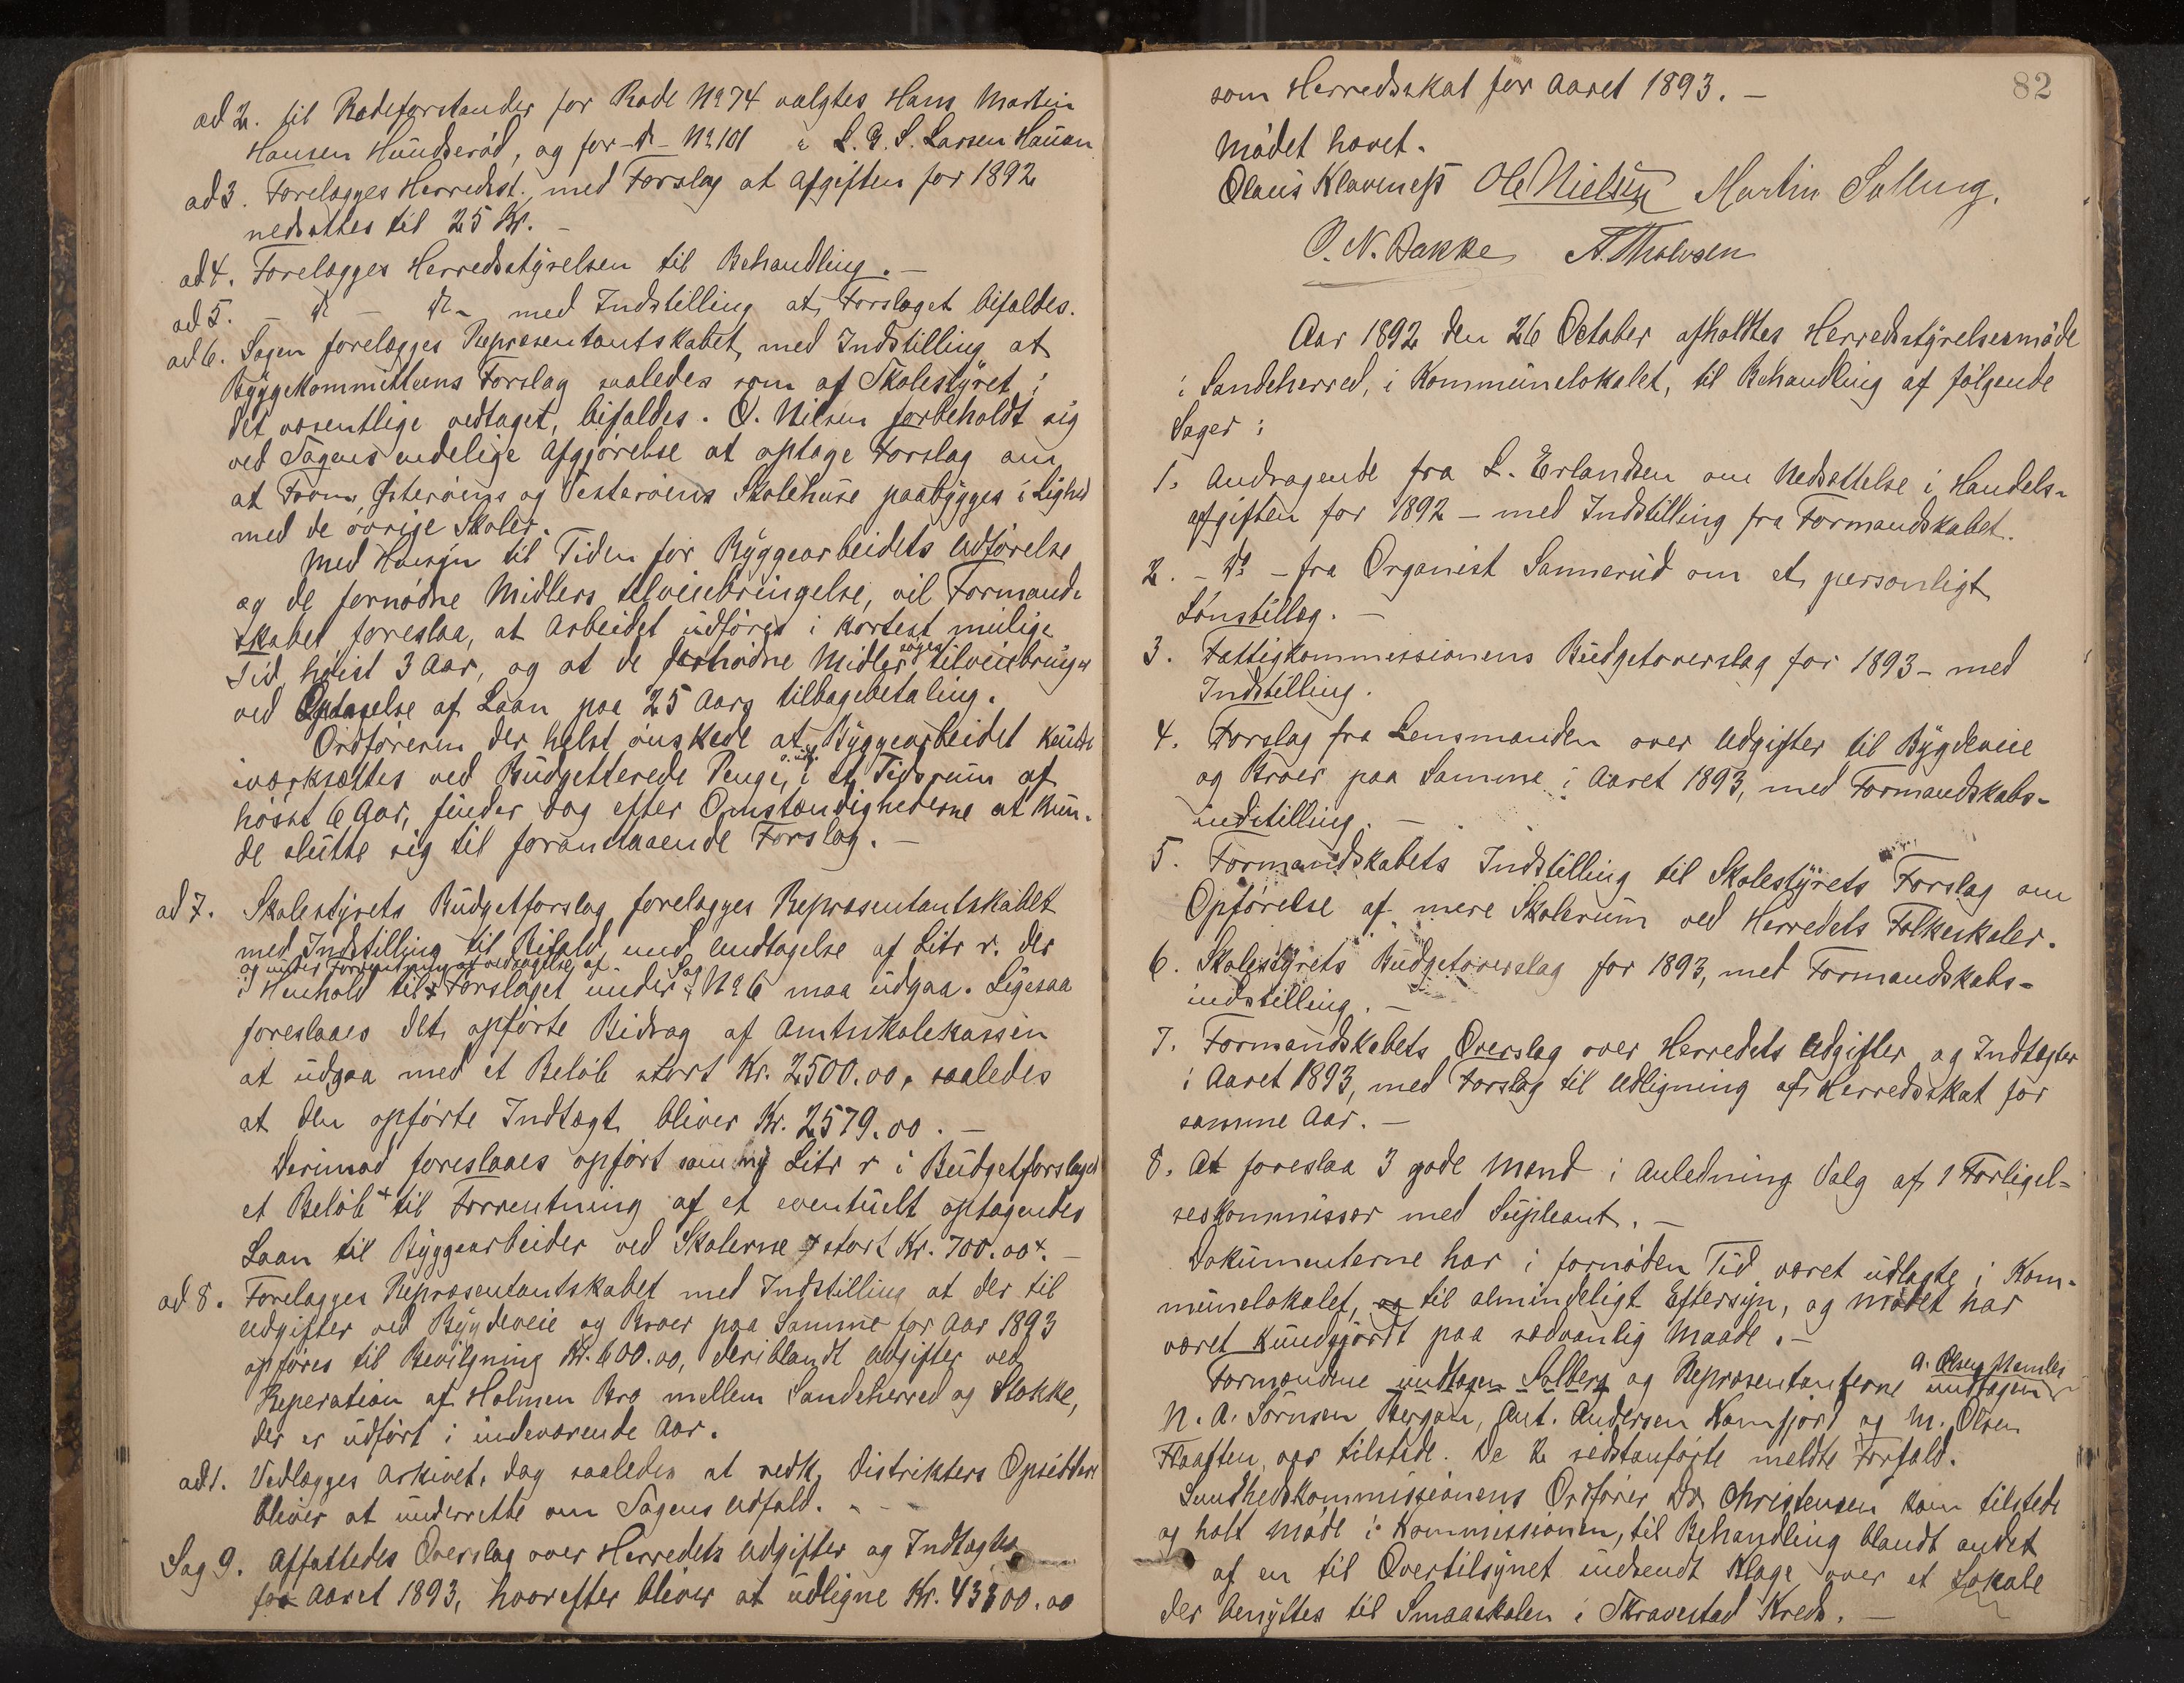 ad 2. til Rodeforstander for Rode No 74 valgtes Hans Martin
Hansen Hundserød, og for - do - No 101 " L. G. S. Larsen Hauan
ad 3. Forelægges Herredsst. med Forslag at Afgiften for 1892
nedsættes til 25 Kr. –
ad 4. Forelægges Herredsstyrelsen til Behandling. –
ad 5. – do – do – med Indstilling at Forslaget bifaldes.
ad 6. Sagen forelægges Repræsentantskabet, med Indstilling at
Byggekommitteens Forslag saaledes som af Skolestyret i
det væsentlige vedtaget, bifaldes. O. Nilsen forbeholdt sig
ved Sagens endelige Afgjørelse at optage Forslag om
at Østerøens og Vesterøens Skolehuse paabygges i Lighed
med de øvrige Skoler.
Med Hensyn til Tiden for Byggearbeidets Udførelse
og de fornødne Midlers tilveiebringelse, vil Formand-
skabet foreslaa, at Arbeidet udføres i kortest mulige
Tid, høist 3 Aar, og at de fornødne Midler søges tilveiebringes
ved Optagelse af Laan paa 25 Aars tilbagebetaling.
Ordføreren der helst ønskede at Byggearbeidet kunde
iværksættes ved Budgetterede Penge, i et Tidsrum af
høist 6 Aar, finder dog efter Omstændighederne at kun-
de slutte sig til foranstaaende Forslag. –
ad 7. Skolestyrets Budgetforslag forelægges Repræsentantskabet
med Indstilling til Bifald med Undtagelse af Litr r. der
og under Forudsætning af vedtagelse af
i Henhold til Forslaget under Sag No 6 maa udgaa. Ligesaa
foreslaaes det opførte Bidrag af Amtsskolekassen
at udgaa med et Beløb stort Kr. 2500.00, saaledes
at den opførte Indtægt bliver Kr. 2579.00. –
Derimod foreslaaes opført som ny Litr r i Budgetforslaget
et Beløb x til Forrentning af et eventuelt optagendes
Laan til Byggearbeider ved Skolerne x stort Kr. 700.00 x. –
ad 8. Forelægges Repræsentantskabet med Indstilling at der til
Udgifter ved Bygdeveie og Broer paa Samme for Aar 1893
opføres til Bevilgning Kr. 600.00, deriblandt Udgifter ved
Reperation af Holmen Bro mellem Sandeherred og Stokke,
der er udført i indeværende Aar.
ad 1. Vedlægges Arkivet, dog saaledes at vedk. Distrikters Opsiddere
bliver at underrette om Sagens Udfald. –
Sag 9. Affattedes Overslag over Herredets Udgifter og Indtægter
for Aaret 1893, hvorefter bliver at udligne Kr. 43300.00
82
som Herredsskat for Aaret 1893. –
Mødet hævet.
Olaus Klaveness Ole Nielsen Martin Solberg.
O. N. Bakke A. Tholvsen
Aar 1892 den 26 October afholdtes Herredsstyrelsesmøde
i Sandeherred, i Kommunelokalet, til Behandling af følgende
Sager:
1. Andragende fra L. Erlandsen om Nedsættelse i Handels-
afgiften for 1892 – med Indstilling fra Formandskabet.
2. – do – fra Organist Sannerud om et personligt
Lønstillæg. –
3. Fattigkommissionens Budgetoverslag for 1893 – med
Indstilling.
4. Forslag fra Lensmanden over Udgifter til Bygdeveie
og Broer paa Samme i Aaret 1893, med Formandskabs-
indstilling. –
5. Formandskabets Indstilling til Skolestyrets Forslag om
Opførelse af mere Skolerum ved Herredets Folkeskoler.
6. Skolestyrets Budgetoverslag for 1893, med Formandskabs-
indstilling. –
7. Formandskabets Overslag over Herredets Udgifter og Indtægter
i Aaret 1893, med Forslag til Udligning af Herredsskat for
samme Aar. –
8. At foreslaa 3 gode Mænd i Anledning Valg af 1 Forligel-
seskommissær med Supleant. –
Dokumenterne har i fornøden Tid været udlagte i Kom-
munelokalet, og til almindeligt Eftersyn, og Mødet har
været kundgjordt paa sædvanlig Maade. –
Formændene undtagen Solberg og Repræsentanterne undtagen A. Olsen
N. A. Sørnsen Bergan, Ant. Andersen Kamfjord og M. Olsen
Flaatten, var tilstede. De 2 sidstanførte meldte Forfald.
Sundhedskommissionens Ordfører Dr. Christensen kom tilstede
og holt Møde i Kommissionen, til Behandling blandt andet
af en til Overtilsynet indsendt Klage over et Lokale
der benyttes til Smaaskolen i Skravestad Kreds. –